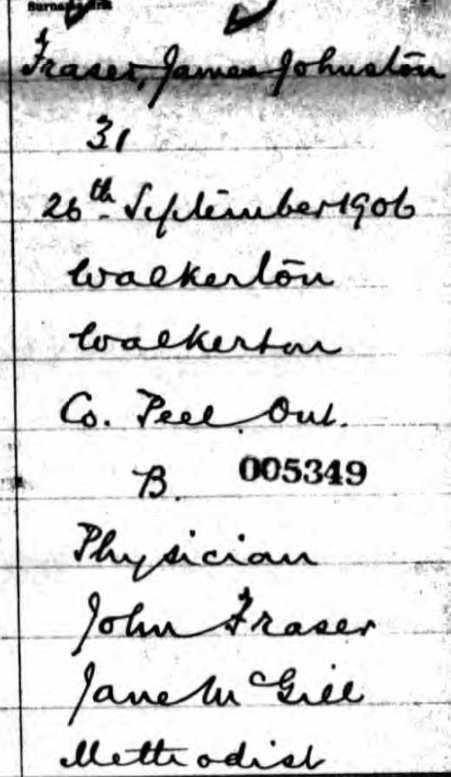 Fraser, James Johnston
31
26th September 1906
Walkerton
Walkerton
Co. Peel. Ont.
B. 005349
Physician
John Fraser
Jane McGill
Methodist